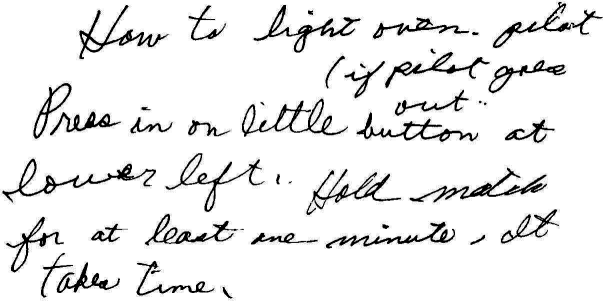 How to light oven pilot
(if pilot goes
out..
Press in on little button at
lower left. Hold match
for at least one minute, It
takes time.